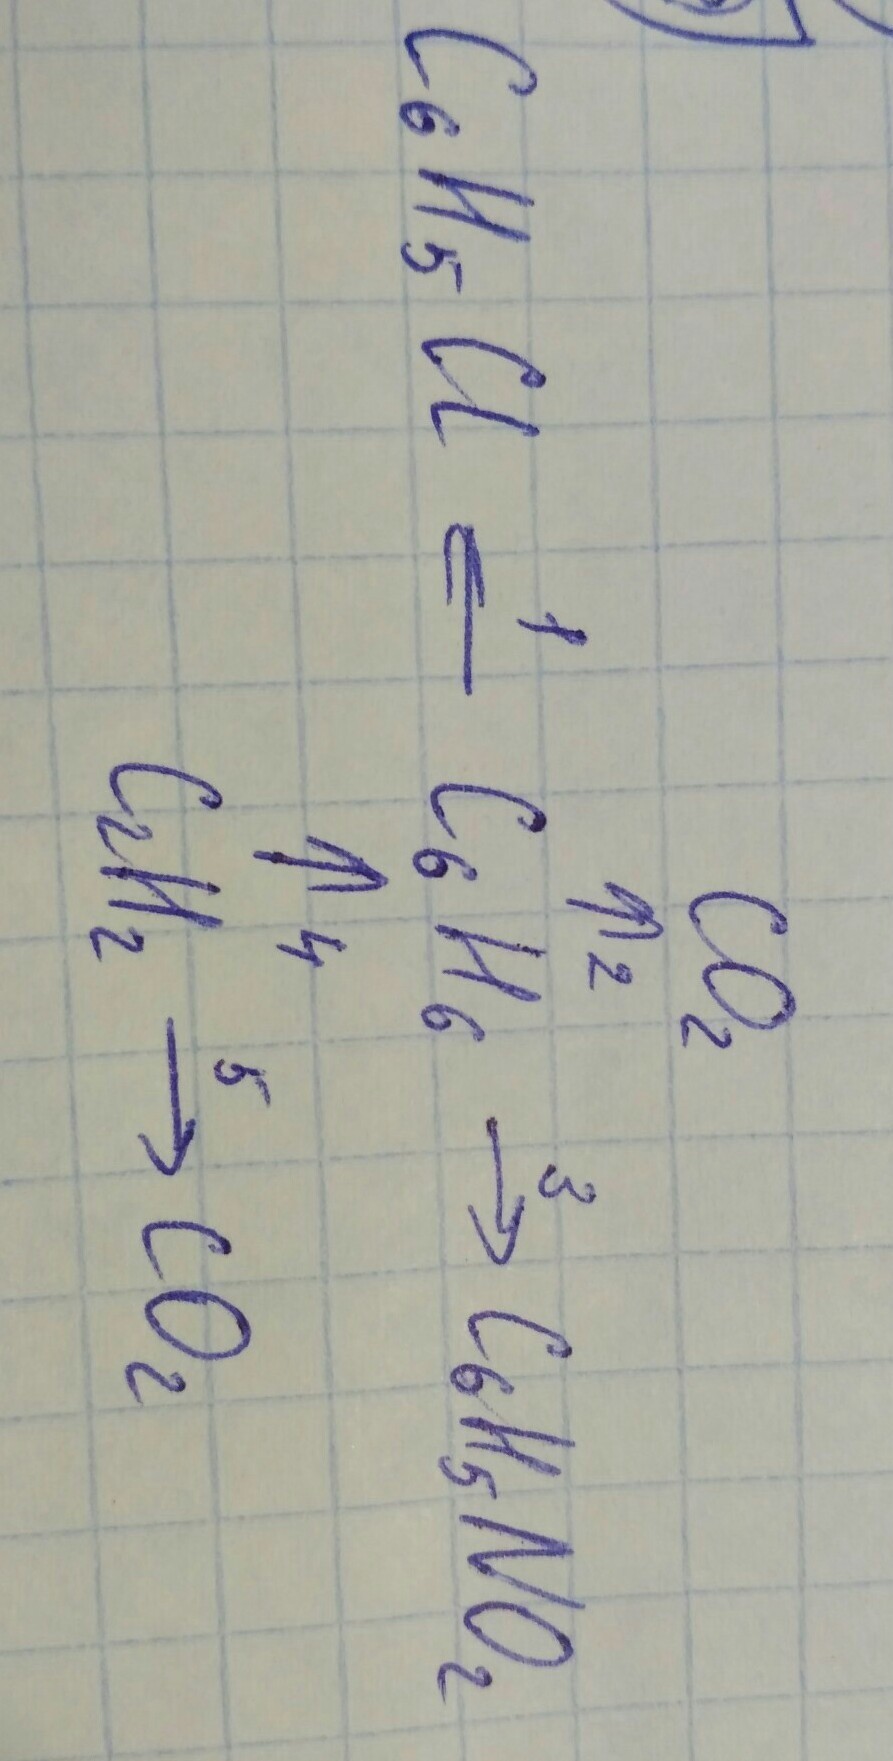 CO₂
↑2
C₆H₅Cl ⟸1 C₆H₆ →3 C₆H₅NO₂
↑4
C₂H₂ →5 CO₂